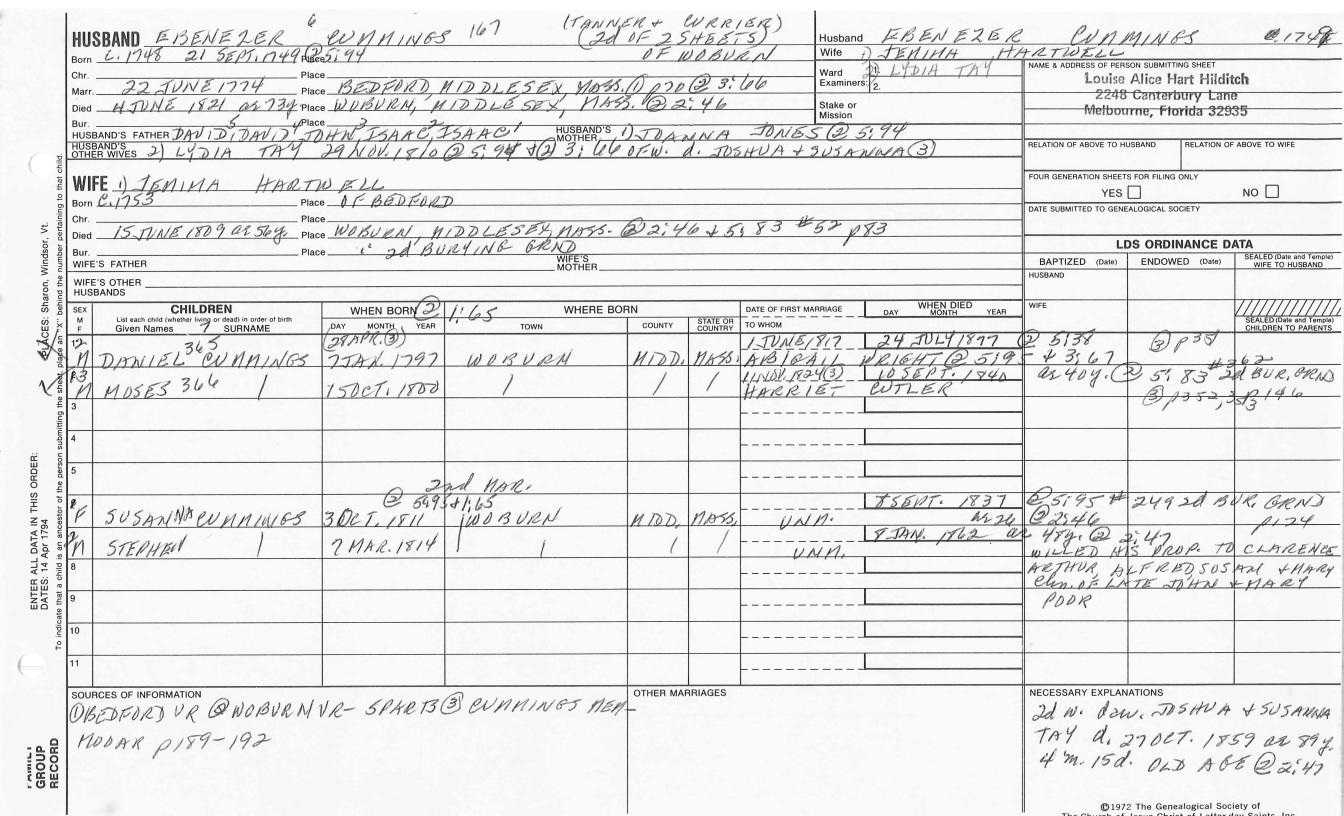 6
HUSBAND EBENEZER CUMMINGS 167 (TANNER + CURRIER)
(2d OF 2 SHEETS)
Born C. 1748 21 SEPT. 1749 ② 5:94 Place OF WOBURN
Chr. Place
Marr. 22 JUNE 1774 Place BEDFORD, MIDDLESEX, MASS. ① p20 ② 3:66
Died 4 JUNE 1821 ae 73y Place WOBURN, MIDDLESEX, MASS. ② 2:46
Bur. Place
HUSBAND'S FATHER DAVID,5 DAVID,4 JOHN,3 ISAAC,2 ISAAC1 HUSBAND'S MOTHER 1) JOANNA JONES ② 5:94
HUSBAND'S OTHER WIVES 2) LYDIA TAY 29 NOV. 1810 ② 5:94 + ② 3:66 OF W. d. JOSHUA + SUSANNA (3)
WIFE 1) JEMIMA HARTWELL
Born C. 1753 Place OF BEDFORD
Chr. Place
Died 15 JUNE 1809 ae 56y. Place WOBURN, MIDDLESEX, MASS. ② 2:46 + 5:83 #52 p83
Bur. Place " 2d BURYING GRND
WIFE'S FATHER WIFE'S MOTHER
WIFE'S OTHER HUSBANDS
Husband EBENEZER CUMMINGS C. 1748
Wife 1) JEMIMA HARTWELL
Ward Examiners: 1. 2. 2) LYDIA TAY
Stake or Mission
NAME & ADDRESS OF PERSON SUBMITTING SHEET
Louise Alice Hart Hilditch
2248 Canterbury Lane
Melbourne, Florida 32935
RELATION OF ABOVE TO HUSBAND RELATION OF ABOVE TO WIFE
FOUR GENERATION SHEETS FOR FILING ONLY
YES NO
DATE SUBMITTED TO GENEALOGICAL SOCIETY
LDS ORDINANCE DATA
BAPTIZED (Date) ENDOWED (Date) SEALED (Date and Temple) WIFE TO HUSBAND
HUSBAND
WIFE
SEALED (Date and Temple) CHILDREN TO PARENTS
SEX M F
CHILDREN
List each child (whether living or dead) in order of birth
Given Names 7 SURNAME
WHEN BORN ② 1:65
DAY MONTH YEAR
WHERE BORN
TOWN COUNTY STATE OR COUNTRY
DATE OF FIRST MARRIAGE
TO WHOM
WHEN DIED
DAY MONTH YEAR
(28 APR. ③) 1 JUNE 1817 24 JULY 1877 ② 5:38 ③ p35
M DANIEL 365 CUMMINGS 7 JAN. 1797 WOBURN MIDD. MASS. ABIGAIL WRIGHT ② 5:95 + 3:67
11 NOV. 1824 (3) 10 SEPT. 1840 ae 40y. ② 5:83 #362 2d BUR. GRND
M MOSES 366 15 OCT. 1800 HARRIET CUTLER ③ p352, p146
3
4
5
2nd MAR.
② 5:95 + 1:65
F SUSANNA CUMMINGS 3 OCT. 1811 WOBURN MIDD. MASS. UNM. 8 SEPT. 1837 ae 26 ② 5:95 # 249 2d BUR. GRND p124
② 2:46
M STEPHEN 7 MAR. 1814 UNM. 8 JAN. 1862 ae 48y. ② 2:47
WILLED HIS PROP. TO CLARENCE
ARTHUR, ALFRED SUSAN + MARY
Chn. OF LATE JOHN + MARY
POOR
8
9
10
11
SOURCES OF INFORMATION
① BEDFORD VR ② WOBURN VR- 5 PARTS ③ CUMMINGS MEM-
MODAR p189-192
OTHER MARRIAGES
NECESSARY EXPLANATIONS
2d w. dau. JOSHUA + SUSANNA
TAY d. 27 OCT. 1859 ae 89y
4 m. 15d. OLD AGE ② 2:47
©1972 The Genealogical Society of
The Church of Jesus Christ of Latter-day Saints, Inc.
ENTER ALL DATA IN THIS ORDER:
DATES: 14 Apr 1794
PLACES: Sharon, Windsor, Vt.
To indicate that a child is an ancestor of the person submitting the sheet, place an "X" behind the number pertaining to that child.
FAMILY GROUP RECORD